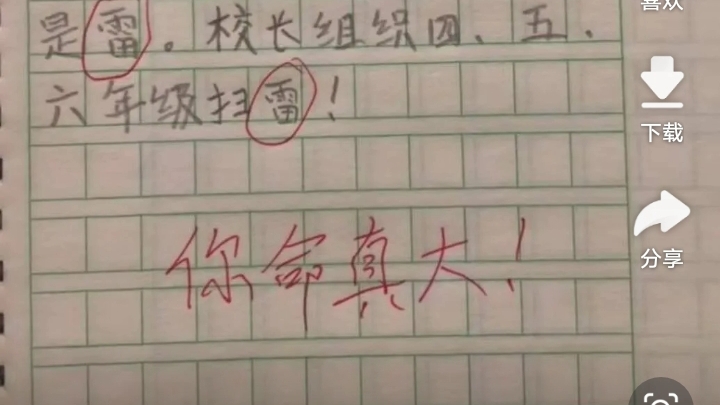 是雷。校长组织四、五、
六年级扫雷！
你命真大！
喜欢
下载
分享